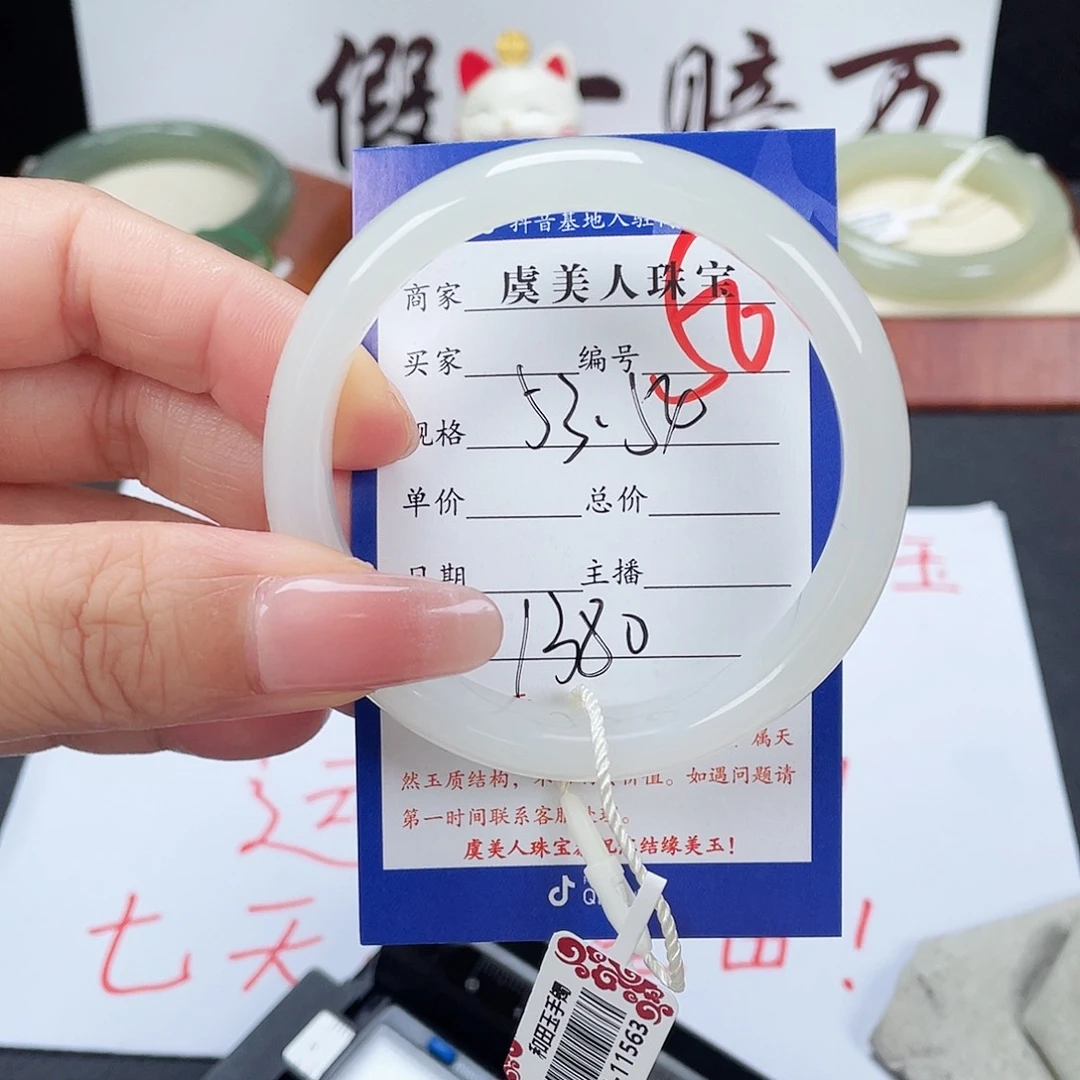 假一赔万
抖音基地入驻
商家 虞美人珠宝
56
买家 编号
规格 53.5
单价 总价
日期 主播
1380
属天
然玉质结构，价值。如遇问题请
第一时间联系客服处理。
虞美人珠宝祝您结缘美玉！
玉
运
七天 ！
和田玉手镯
11563